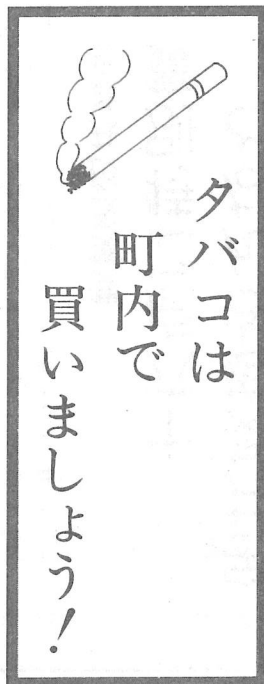 タバコは
町内で
買いましょう！